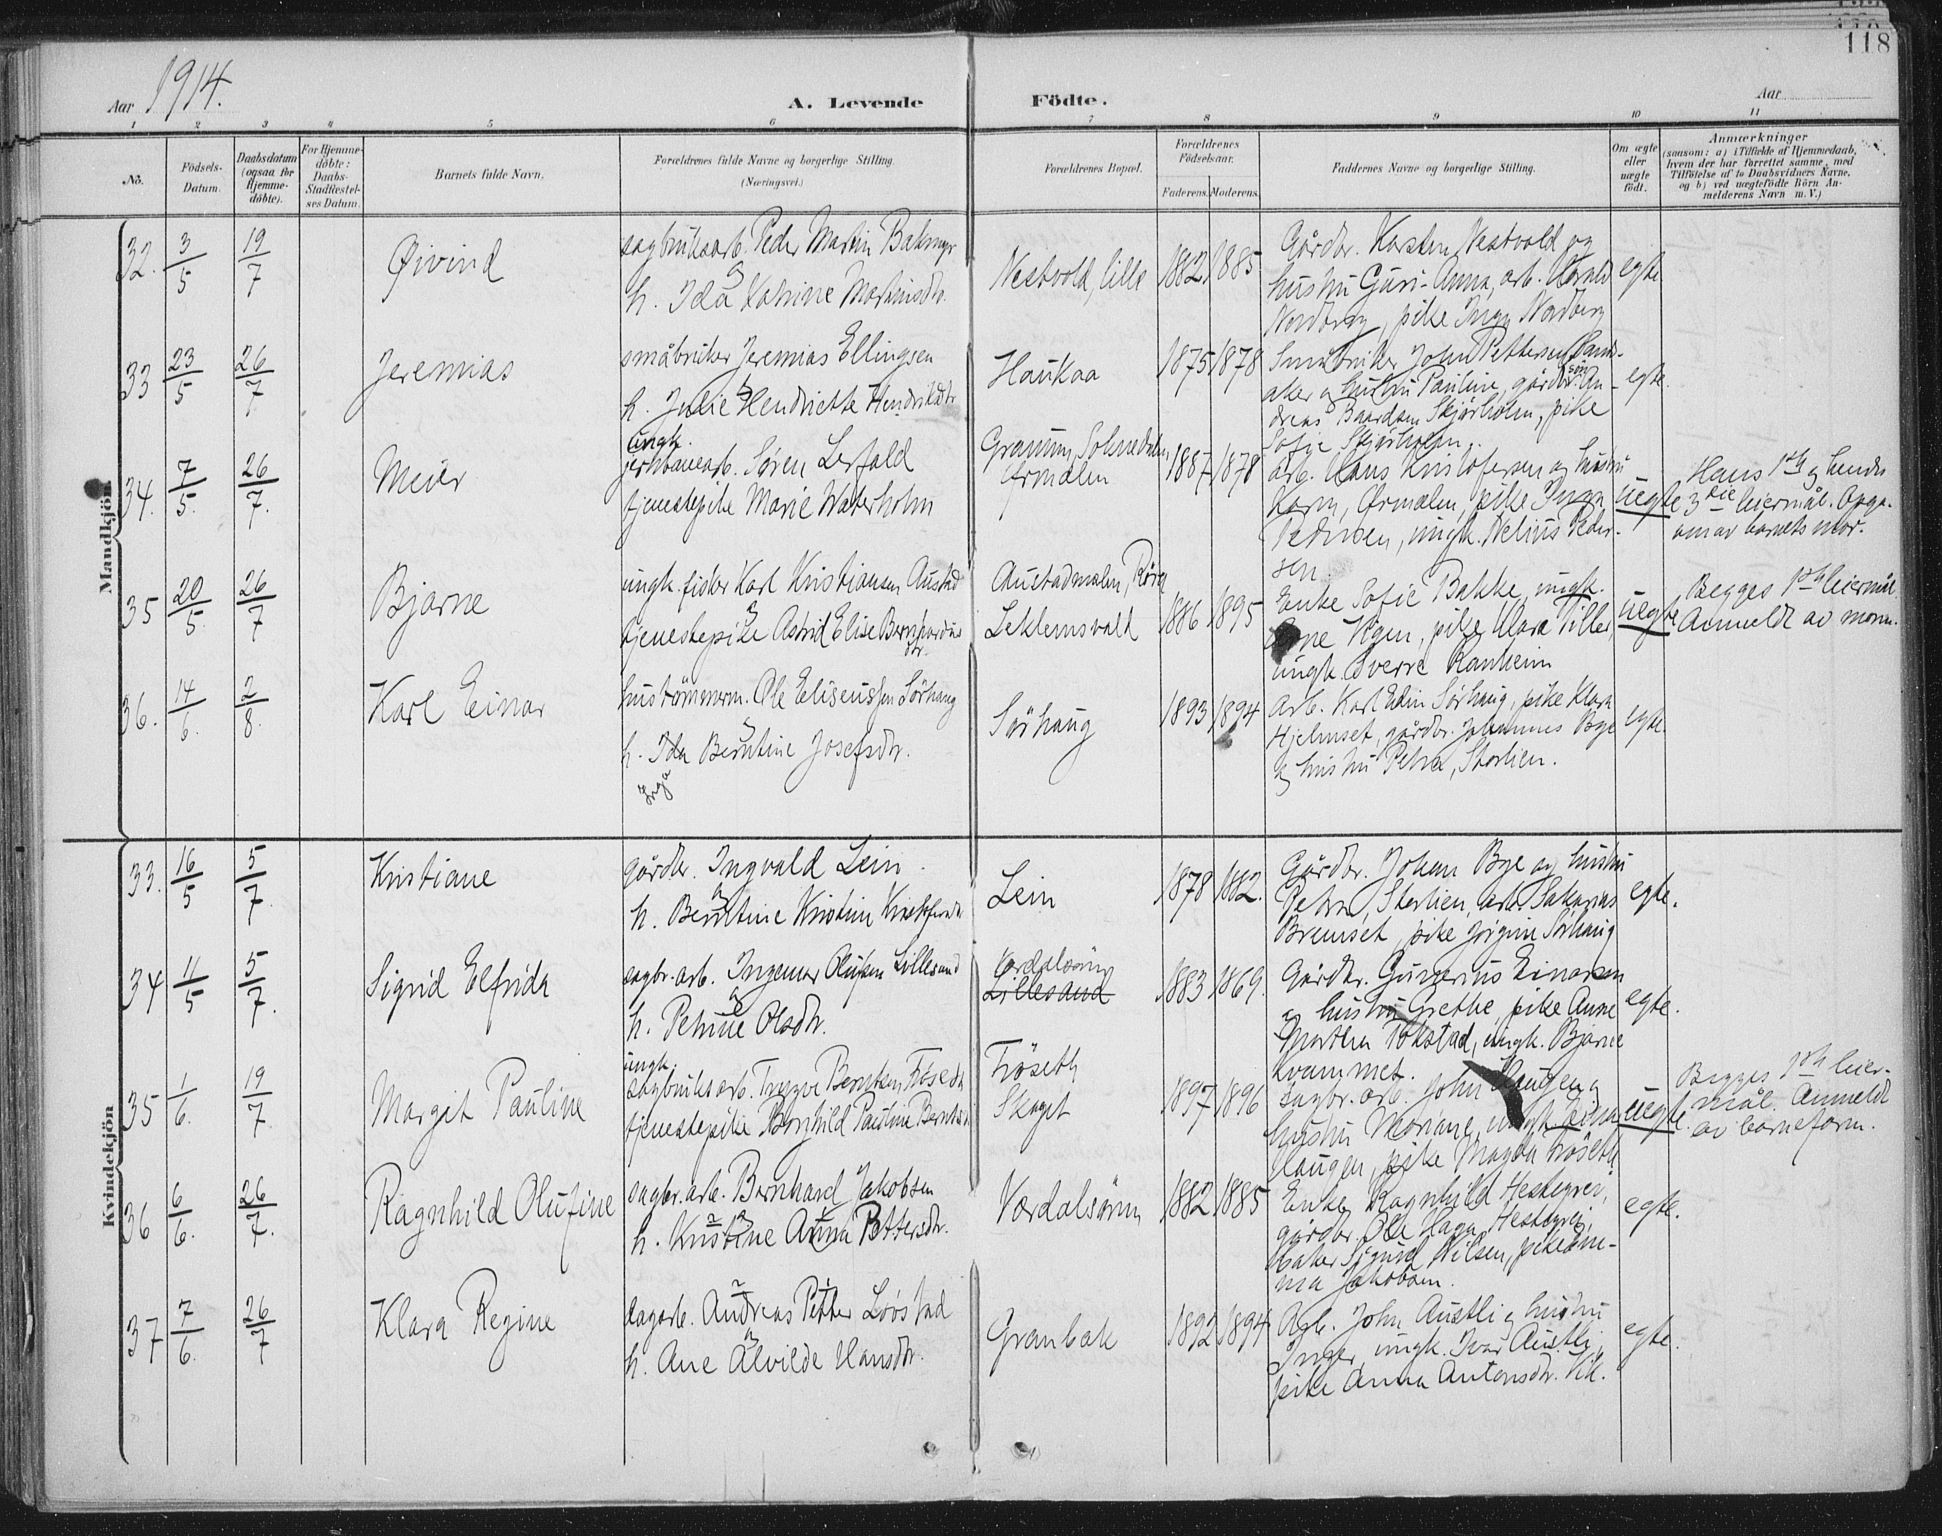 118
Aar 1914.
A. Levende Födte.
Aar
1 2 3 4 5 6 7 8 9 10 11
No.
Födsels-Datum.
Daabsdatum (ogsaa for Hjemme-döbte).
For Hjemme-döbte: Daabs-Stadfæstel-ses Datum.
Barnets fulde Navn.
Forældrenes fulde Navne og borgerlige Stilling.
(Næringsvei.)
Forældrenes Bopæl.
Forældrenes Födselsaar.
Faderens. Moderens.
Faddernes Navne og borgerlige Stilling.
Om ægte eller uægte födt.
Anmærkninger
(saasom: a) i Tilfælde af Hjemmedaab, hvem der har forrettet samme, med Tilföielse af to Daabsvidners Navne, og b) ved uægtefödte Börn An-melderens Navn m. V.)
Mandkjön
32. 3/5 19/7 Øivind
sagbruksarb. Peder Martin Bakmyr
h. Ida Katrine Martinsdtr.
Nestvold, lille 1882 1885
Gårdbr. Karsten Nestvold og
hustru Guri-Anna, arb. Harald
Nordberg, pike Inga Nordberg
egte
33 23/5 26/7 Jeremias
småbruker Jeremias Ellingsen
h. Julie Henriette Hendriksdtr
Haukaa 1875 1878
Småbruker John Pettersen
aker og hustru Pauline, gårdbr.søn An-
dreas Baardsen Skjørholm, pike
Sofie Skjørholm.
egte.
34. 7/5. 26/7. Meier
ungk.
jernbanearb. Søren Lerfald
tjenestepike Marie Waterholm
Ørmælen 1887 1878
arb. Hans Kristofersen og hustru
Karn, Ørmælen, pike Inga
Pedersen, ungk. Nelius Peder-
sen.
uegte
Hans 1ste og hendes
3die leiermål. Opga.
en av barnets mor.
35 20/5 26/7 Bjarne
ungk. fisker Karl Kristiansen Austad
tjenestepike Astrid Elise Bernhards
dtr.
Austadmælen, Røra
Leklemsvald 1886 1895
Enke Sofie Bakke, ungk.
pike Klara Tiller,
ungk. Sverre Ranheim
uegte
Begges 1ste leiermål.
Anmeldt av moren.
36. 14/6. 2/8. Karl Einar
hustömmerm. Ole Eliseussen Sörhaug
h. Ida Berntine Josefsdtr.
Inga
Sörhaug 1893 1894
Arb. Karl Edin Sörhaug, pike Klara
Hjelmset, gårdbr. Johannes Bye
og hustru Petra, Storlien.
egte.
Kvindekjön
33. 16/5 5/7 Kristiane
gårdbr. Ingvald Lein.
h. Berntine Kristine Kristofersdtr
Lein 1878 1882.
Gårdbr. Johan Bye og hustru
Petra, Storlien, arb. Sakarias
Bremset, pike Jörgine Sörhaug
egte.
34 11/5 5/7. Sigrid Elfrida
sagbr.arb. Ingemar Olufsen Lillesand
h. Petrine Olsdtr.
Værdalsøren
Lillesand 1883 1869.
Gårdbr. Gunerius Einarsen
og hustru Grethe, pike Anne
Martha Tokstad, ungk. Bjarne
Kvammet.
egte.
35 1/6. 19/7 Margit Pauline
ungk.
sagbruksarb. Trygve Berntsen Fröseth
tjenestepike Borghild Pauline Berntsdtr
Fröseth
Skaget 1897 1896
sagbr.arb. John Haugen og
hustru Mariane, ungk.
Haugen, pike Magda Fröseth
uegte.
Begges 1ste leier-
mål. Anmeldt
av barnefaren.
36 6/6. 26/7. Ragnhild Olufine
sagbr.arb. Bernhard Jakobsen
h. Kristine Anna Pettersdtr.
Værdalsören 1882 1885
Enke Ragnhild Hestegrei,
gårdbr. Ole Haga, Hestegrei,
baker Sigurd Nilsen, pike Em-
ma Jakobsen.
egte.
37 7/6. 26/7 Klara Regine
dagarb. Andreas Petter Löøstad
h. Ane Alvilde Hansdtr.
Granbak 1892 1894
Arb. John Austli og hustru
Inger, ungk. Ivar Austli,
pike Anna Antonsdtr. Vik.
egte.